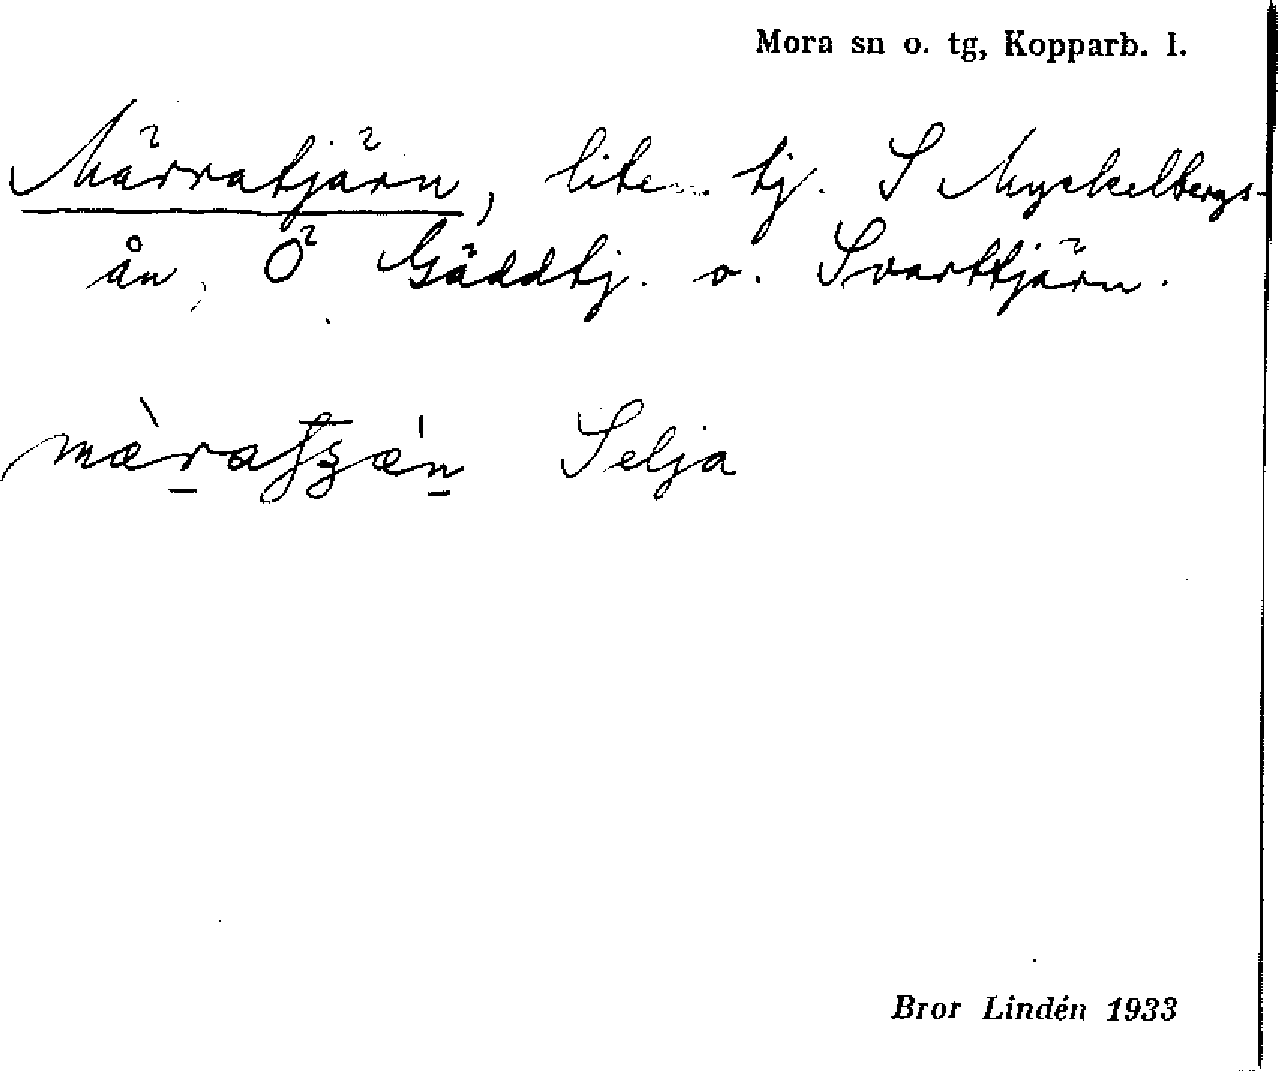 Mora sn o. tg, Kopparb. l.
Märratjärn, liten tj. S Myckelbergs-
ån, Ö Gäddtj. o. Svarttjärn.
Selja
Bror Lindén 1933